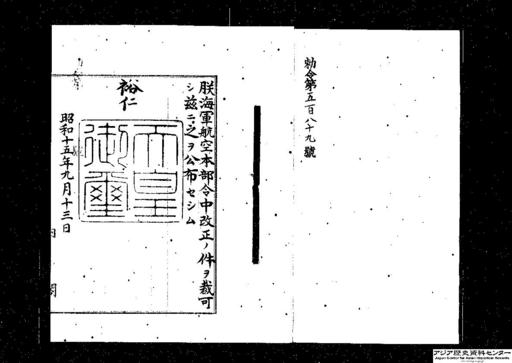 勅令第五百八十九號
朕海軍航空本部令中改正ノ件ヲ裁可
シ茲ニ之ヲ公布セシム
裕仁
天皇
御璽
昭和十五年九月十三日
内閣
アジア歴史資料センター
Japan Center for Asian Historical Records